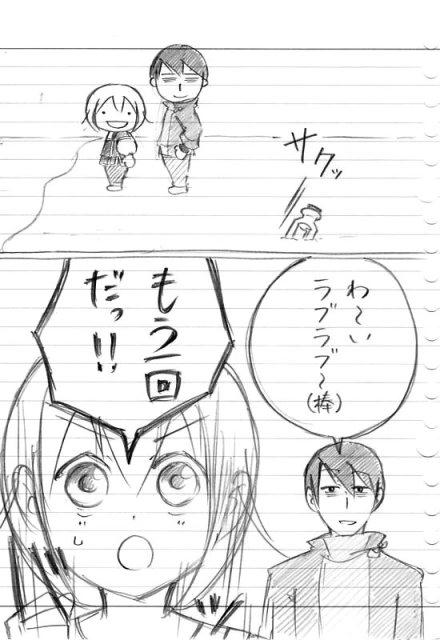 サクッ
わ〜い
ラブラブ〜
(棒)
もう一回
だっ!!